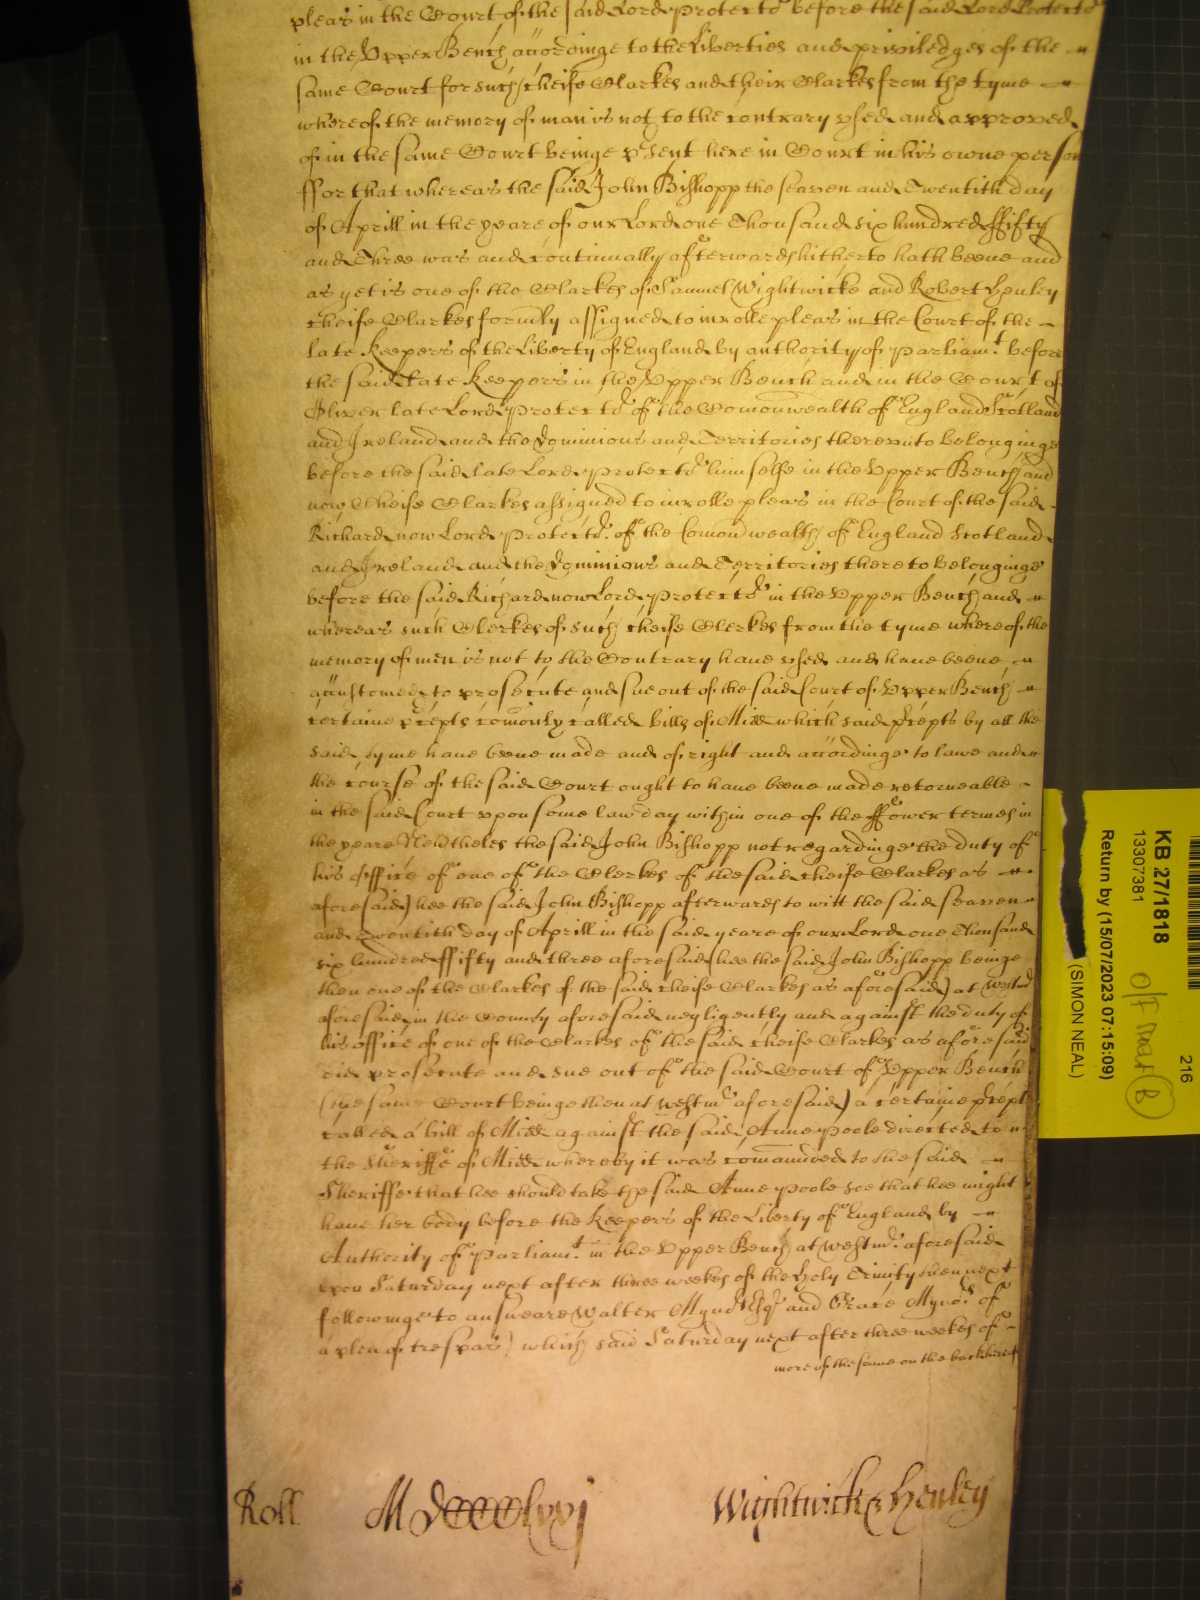 pleas in the Court of the said Lord Protector before the said Lord Protector
in the Upper Bench accordinge to the Liberties and priviledges of the
same Court for such cheife Clarkes and their Clarkes from the tyme
whereof the memory of man is not to the contrary vsed and approved
of in the same Court beinge psent here in Court in his owne person
ffor that whereas the said John Bishopp the seaven and Twentith day
of Aprill in the yeare of our Lord one Thousand six hundred ffifty
and Three was and continually afterwards hitherto hath beene and
as yet is one of the Clarkes of Samuel Wightwicke and Robert Henley
cheife Clarkes formly assigned to inrolle pleas in the Court of the
late Keepers of the Liberty of England by authority of Parliamt before
the said late Keepers in the Vpper Bench and in the Court of
Oliver late Lord Protector of the Comonwealth of England Scotland
and Ireland and the Dominions and Territories therevnto belonginge
before the said late Lord Protector himselfe in the Vpper Bench and
now Cheife Clarkes assigned to inrolle pleas in the Court of the said
Richard now Lord Protector of the Comonwealth of England Scotland
and Ireland and the Dominions and Territories thereto belonginge
before the said Richard now Lord Protector in the Vpper Bench and
whereas such Clerkes of such cheife Clerkes from the tyme whereof the
memory of men is not to the Contrary haue vsed and haue beene
accustomed to prosecute and sue out of the said Court of Vpper Bench
certaine pcepts comonly called bills of Midd which said pcepts by all the
said tyme haue beene made and of right and accordinge to lawe and
the course of the said Court ought to haue beene made retorneable
in the said Court vpon some law day within one of the ffower termes in
the yeare Nevtheles the said John Bishopp not regardinge the duty of
his office of one of the Clerkes of the said cheife Clarkes as
aforesaid hee the said John Bishopp afterwards to witt the said seaven
and Twentith day of Aprill in the said yeare of our Lord one Thousand
six hundred ffifty and three aforesaid (hee the said John Bishopp beinge
then one of the Clarkes of the said cheife Clarkes as aforesaid) at Westmr
aforesaid in the County aforesaid negligently and against the duty of
his office of one of the Clarkes of the said cheife Clarkes as aforesaid
did prosecute and sue out of the said Court of Vpper Bench
(the same Court beinge then at Westmr aforesaid) a certaine pcept
called a bill of Midd against the said Anne Poole directed to
the Sheriffe of Midd whereby it was comaunded to the said
Sheriffe that hee should take the said Anne Poole soe that hee might
haue her body before the Keepers of the Liberty of England by
Authority of Parliamt in the Vpper Bench at Westmr aforesaid
vpon Saturday next after three weekes of the Holy Trinity then next
followinge to answeare Walter Mynd Esqr and Grace Mynors of
a plea of trespas) which said Saturday next after three weekes of
more of the same on the backhereof
Roll MDCCCClxxj Wightwick & Henley
KB 27/1818
13307381
216
Return by (15/07/2023 07:15:09)
(SIMON NEAL)